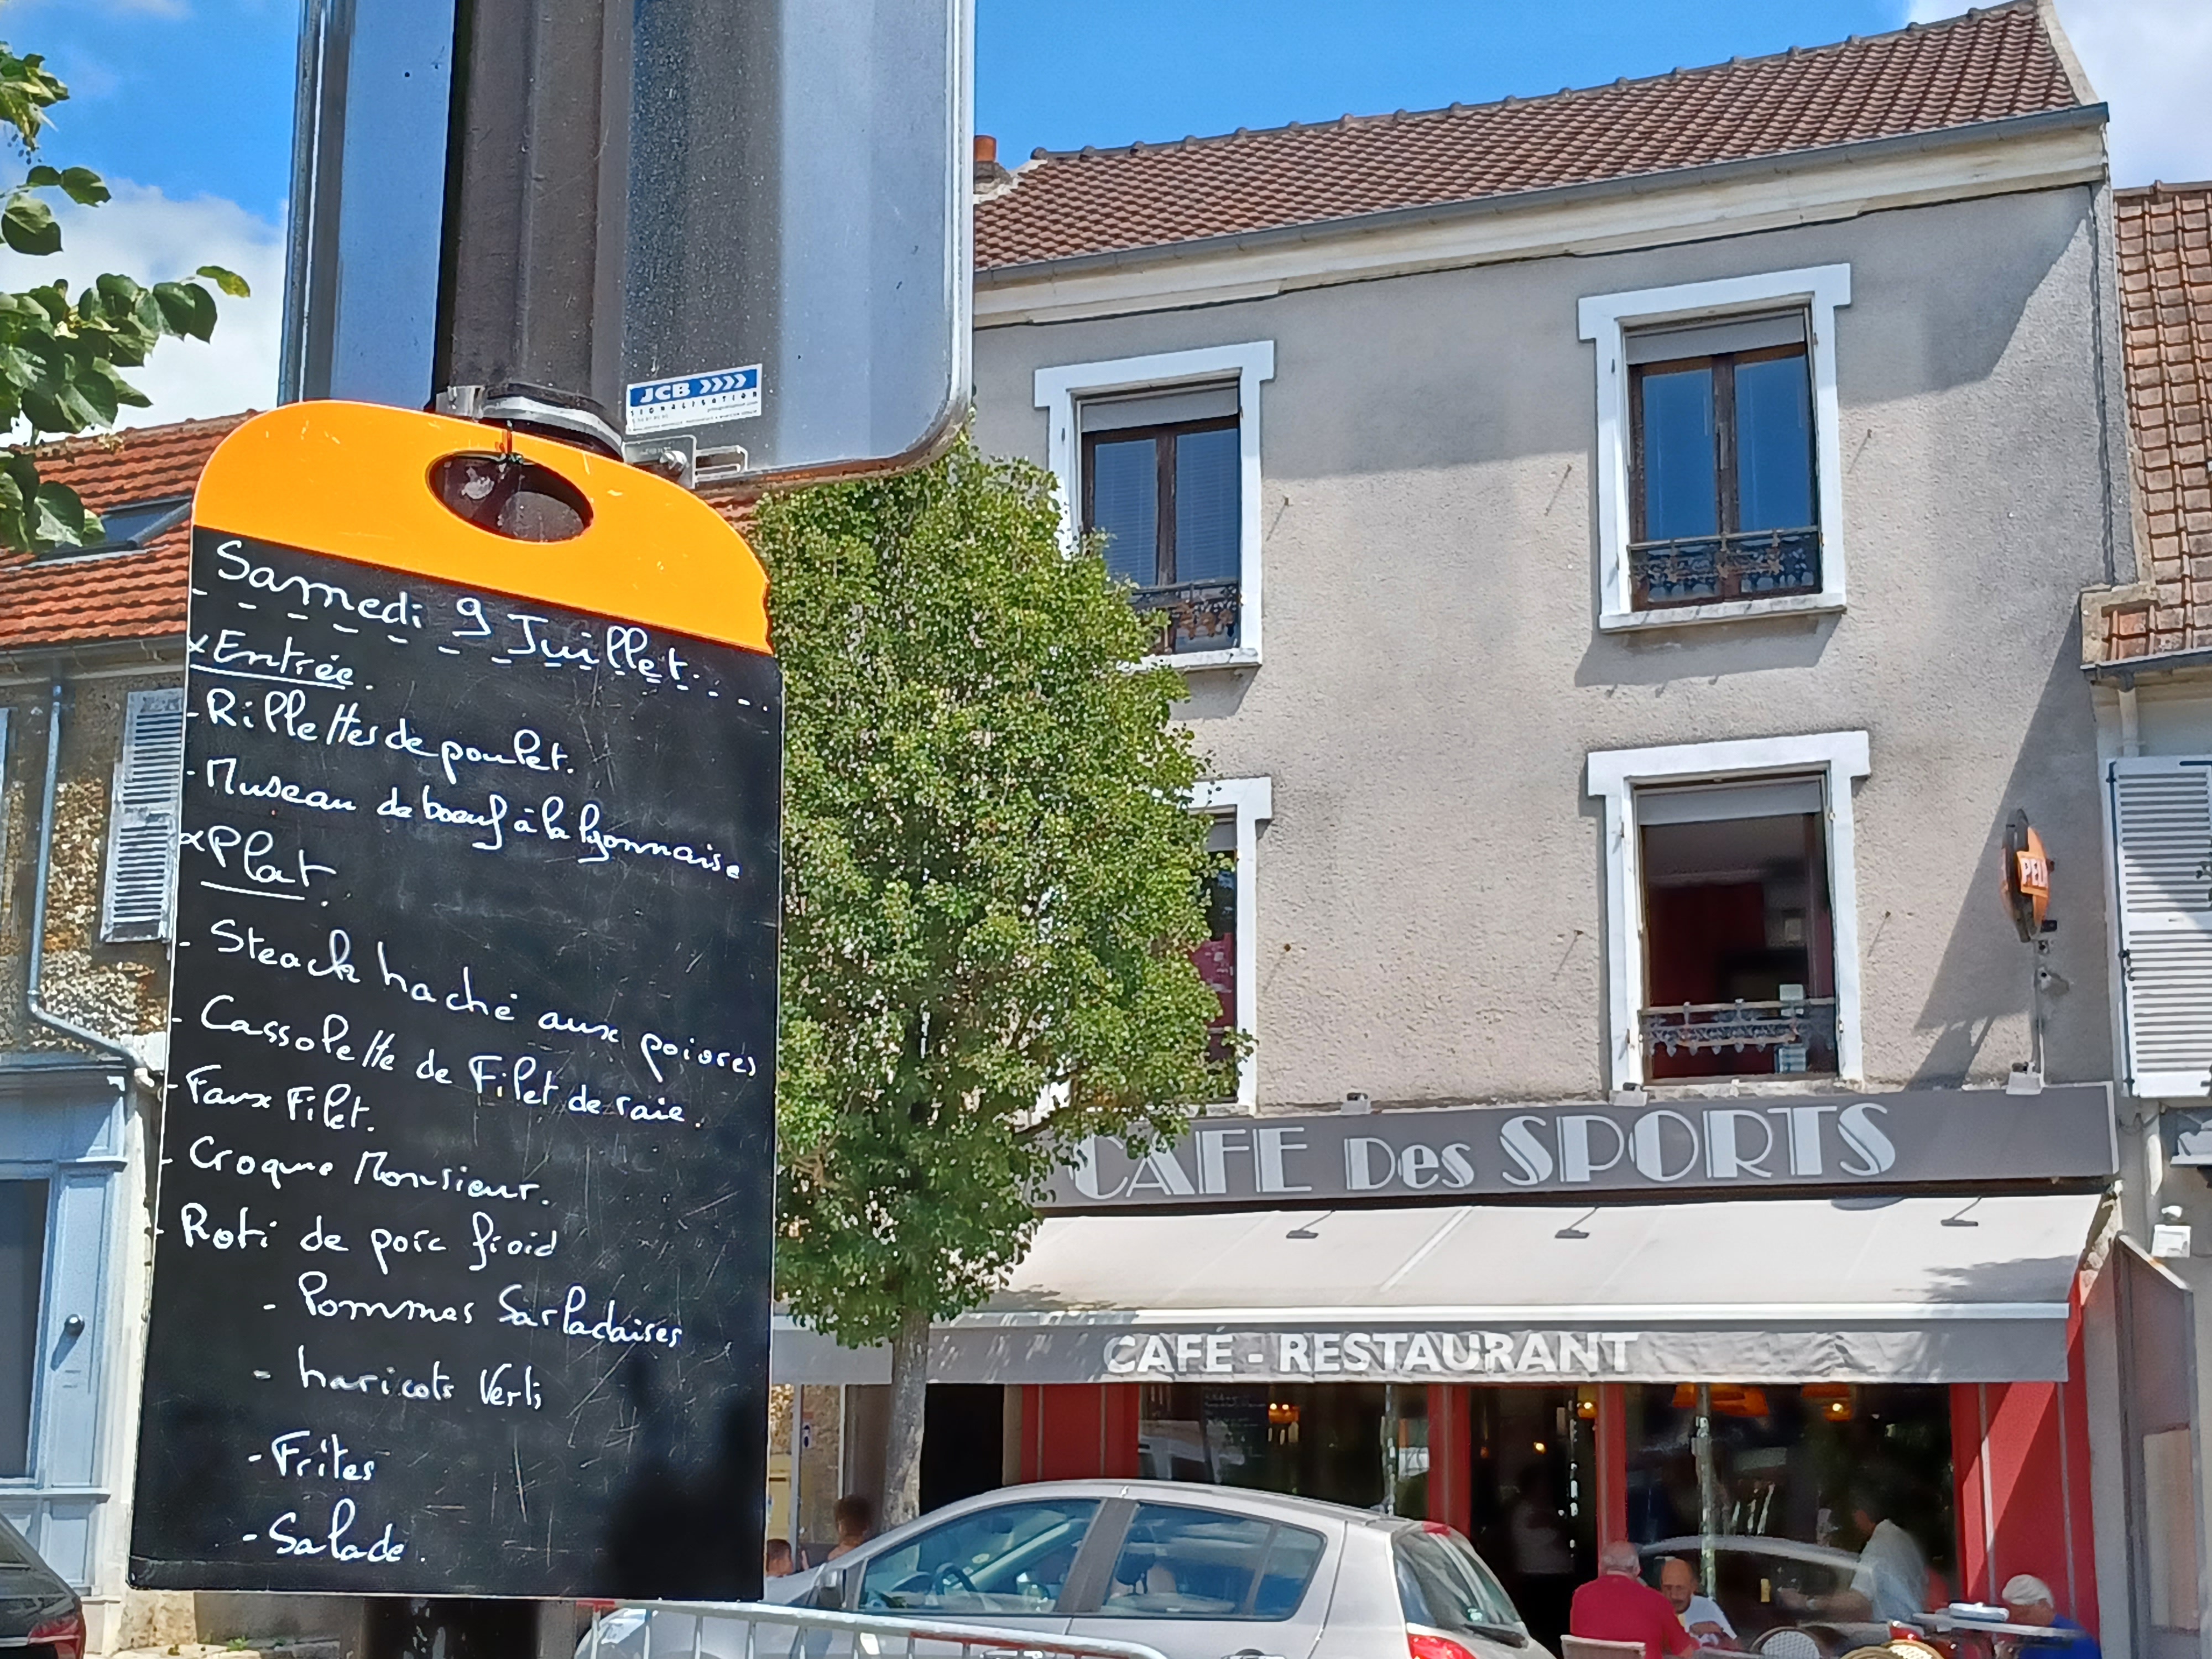 JCB
SIGNALISATION
Samedi 9 Juillet
x Entrée.
- Rillettes de poulet.
- Museau de boeuf à la lyonnaise
x Plat.
- Steack haché aux poivres
- Cassolette de Filet de raie.
- Faux Filet.
- Croque Monsieur.
- Roti de porc froid
- Pommes Sarladaises
- haricots Verts
- Frites
- Salade.
CAFE Des SPORTS
CAFÉ - RESTAURANT